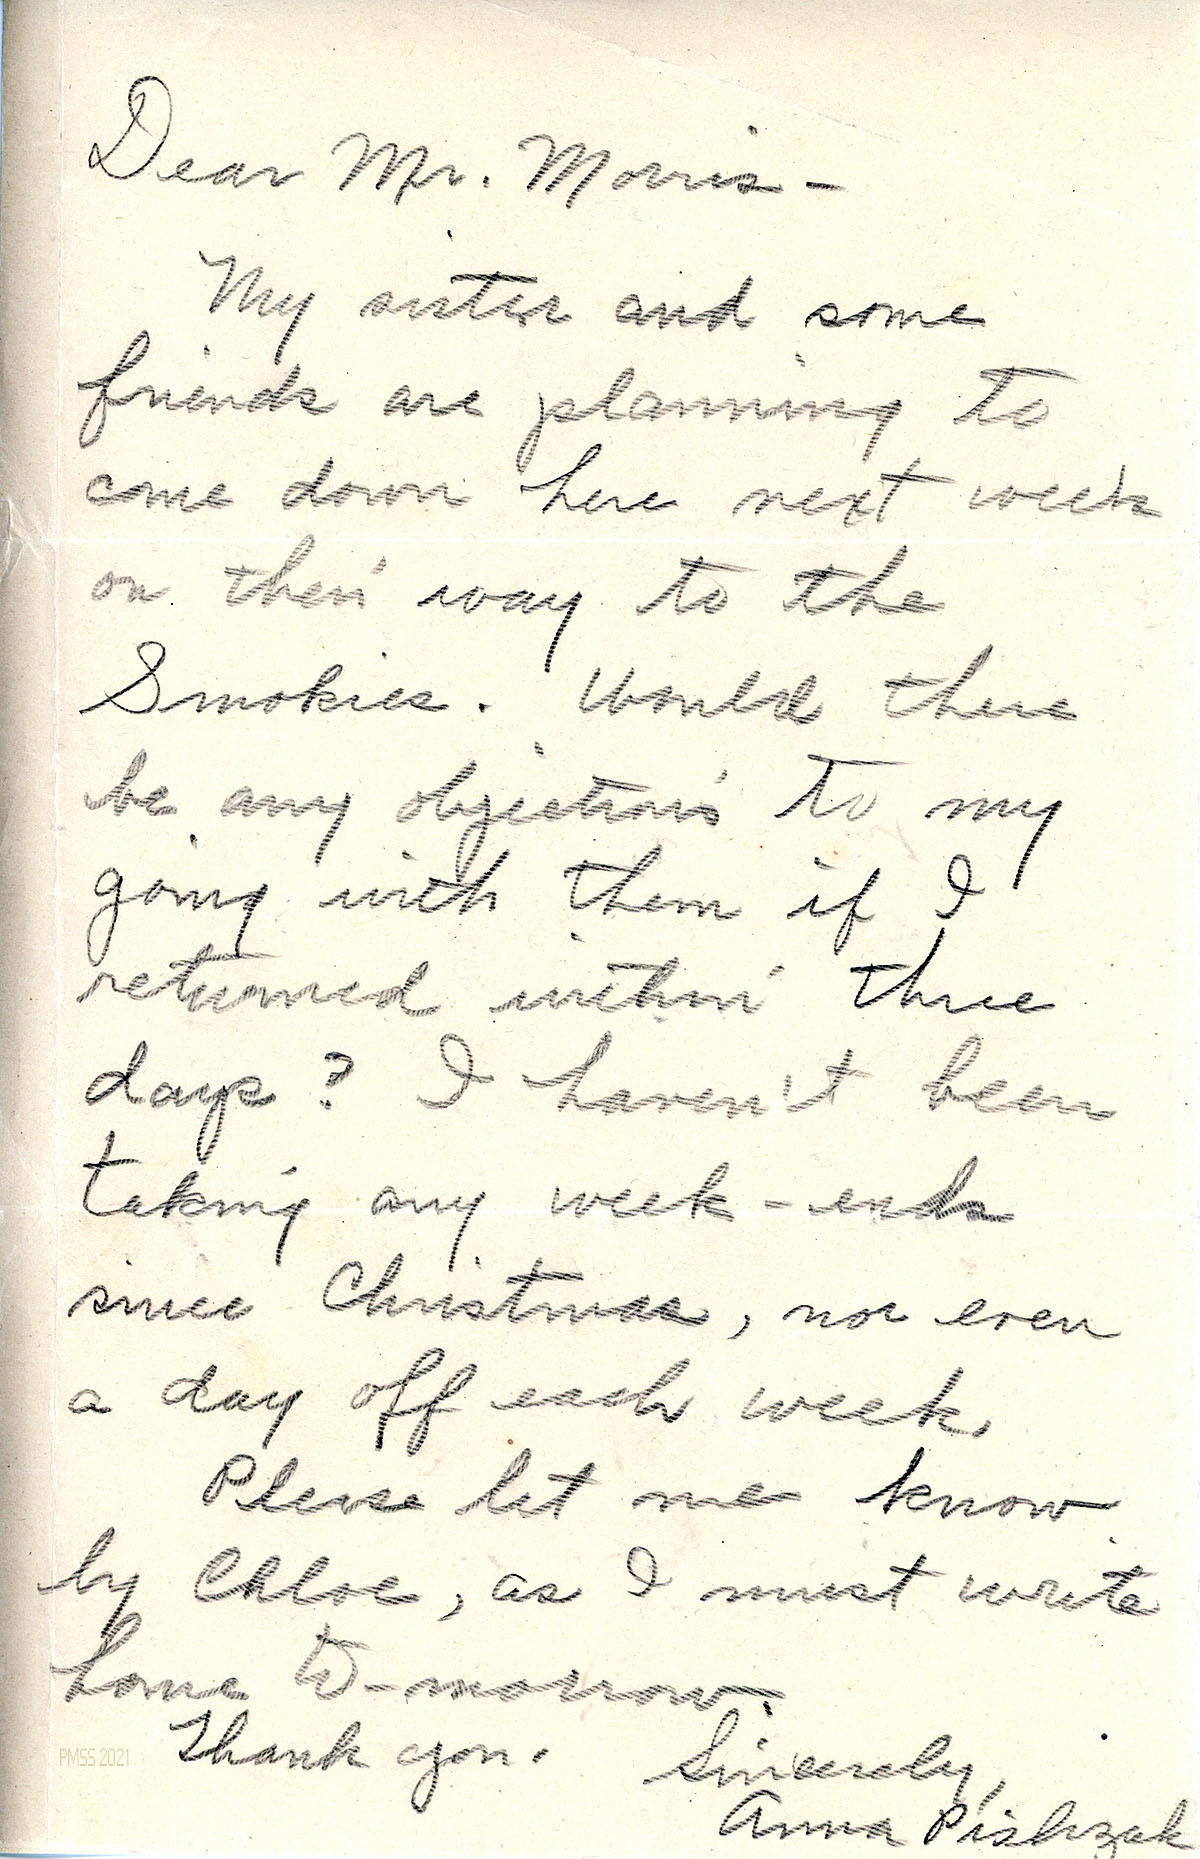 Dear Mr. Morris -
My sister and some
friends are planning to
come down here next week
on their way to the
Smokies. Would there
be any objections to my
going with them if I
returned within three
days? I haven't been
taking any week-ends
since Christmas, nor even
a day off each week.
Please let me know
by Chloe, as I must write
home to-morrow.
Thank you. Sincerely,
Anna
PMSS 2021